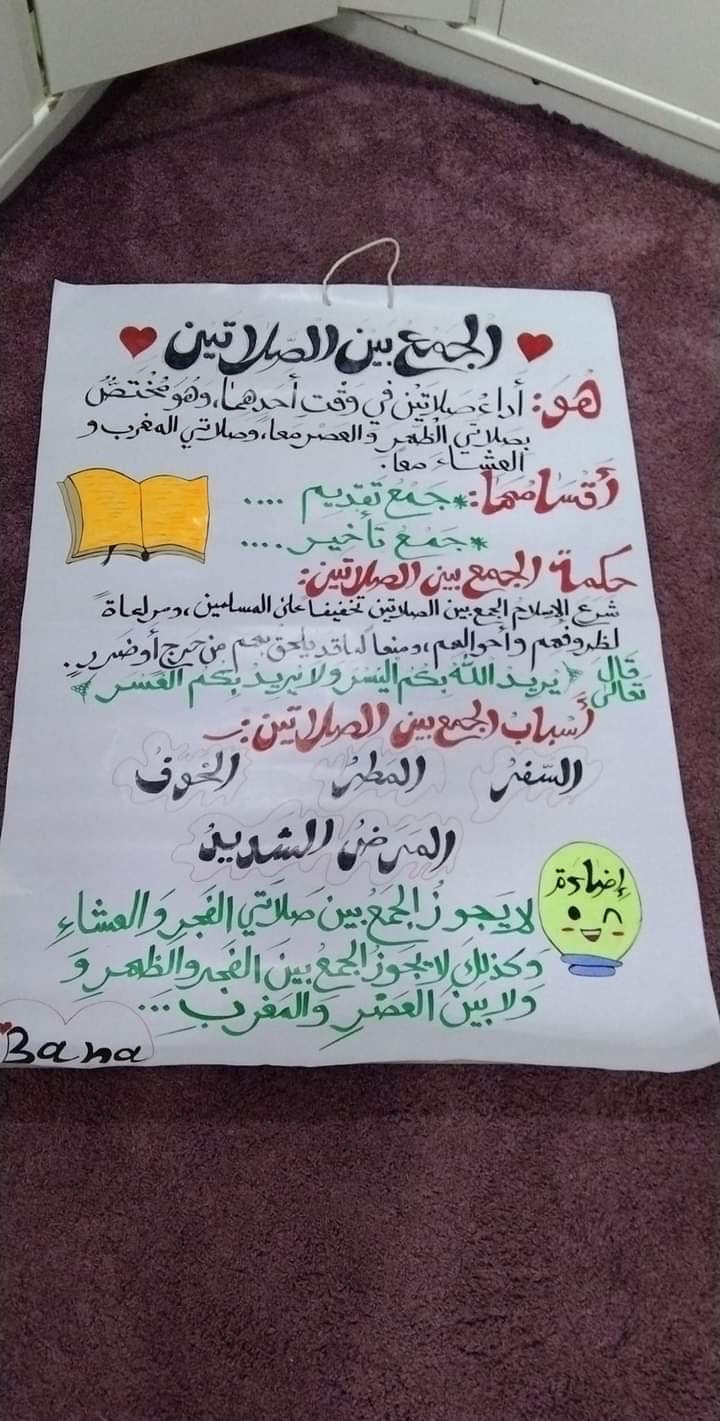 الجمع بين الصلاتين
هو: أداء صلاتين في وقت أحدهما، وهو مختصٌّ
بصلاتي الظهر والعصر معا، وصلاتي المغرب و
العشاء معا.
أقسامها: *جمع تقديم ....
*جمع تأخير ....
حكمة الجمع بين الصلاتين:
شرع الإسلام الجمع بين الصلاتين تخفيفا على المسلمين، ومراعاة
لظروفهم وأحوالهم، ومنعا لما قد يلحق بهم من حرج أو ضرر.
قال تعالى ﴿يريد الله بكم اليسر ولا يريد بكم العسر﴾
أسباب الجمع بين الصلاتين:
السفر المطر الخوف
المرض الشديد
إضاءة
لا يجوز الجمع بين صلاتي الفجر والعشاء
وكذلك لا يجوز الجمع بين الفجر والظهر و
ولا بين العصر والمغرب ...
Bana